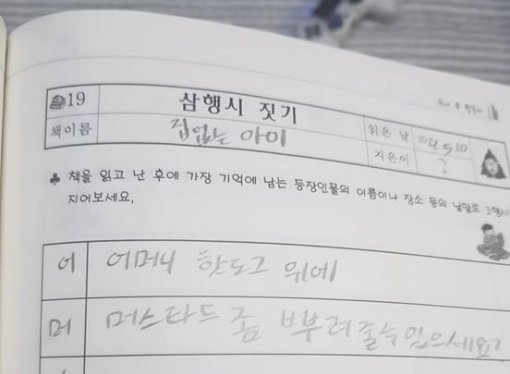 19 삼행시 짓기
책이름 집없는 아이
읽은 날 2024 5 10
지은이 ?
♣ 책을 읽고 난 후에 가장 기억에 남는 등장인물의 이름이나 장소 등의 낱말로 3행시
지어보세요.
어 어머니 핫도그 위에
머 머스타드 좀 뿌려줄수있으세요?